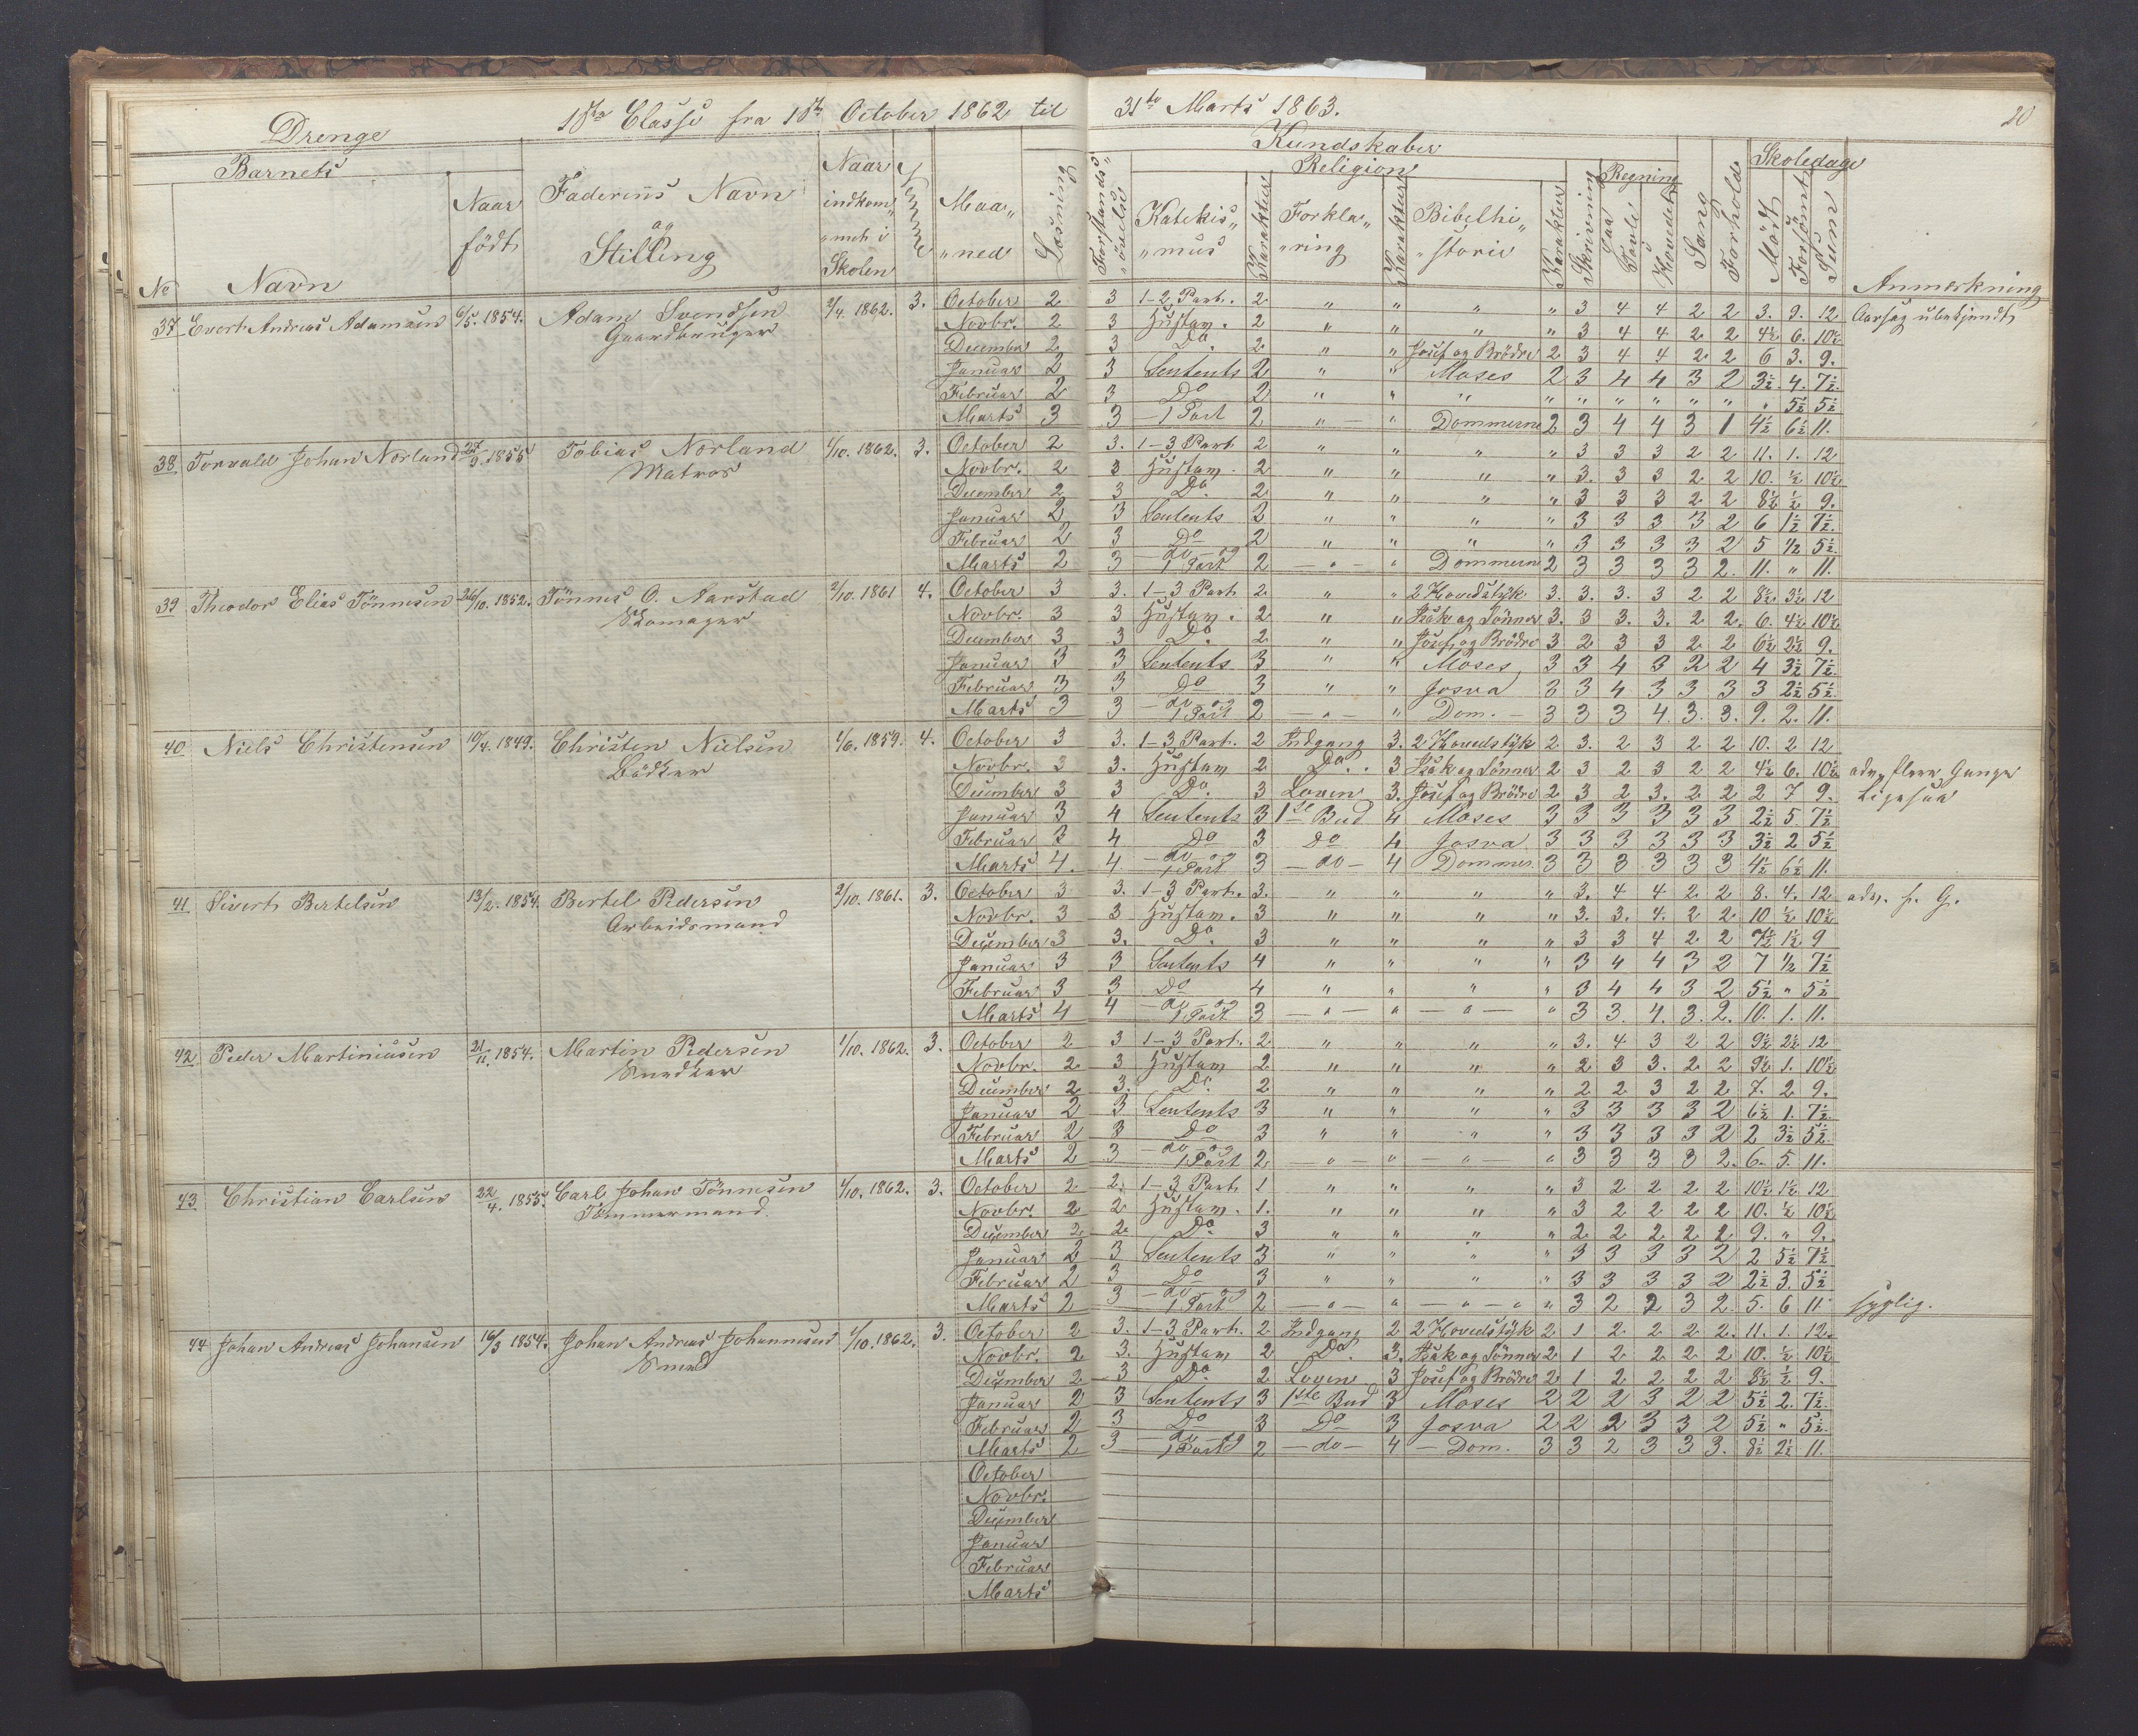 Drenge 1ste Classe fra 1ste October 1862 til 31te Marts 1863. 20
Barnets
No Navn
Naar födt
Faderens Navn og Stilling
Naar indkommen i Skolen
Evne
Maaned
Læsning
Kundskaber
Forstandsövelse
Religion
Katekismus Karakter Forklaring Karakter Bibelhistorie Karakter
Skrivning
Regning
Paa Tavle Hovedet
Sang
Forhold
Skoledage
Mödt Forsömt Sum
Anmærkning
37 Evert Andreas Adamsen 6/5. 1854. Adam Svendsen 2/4. 1862. 3. October 2 3 1-2 Part. 2 " " " " 3 4 4 2 2 3. 9. 12 Aarsag ubekjendt
Gaardbruger Novbr. 2 3 Hustav. 2 " " " " 3 4 4 2 2 4½ 6. 10½
December 2 3 Do. 2 " " Josef og Brödre 2 3 4 4 2 2 6 3. 9.
Januar 2 3 Sentents 2 " " Moses 2 3 4 4 3 2 3½. 4. 7½.
Februar 2 3 Do 2 " " " " " " " " " " 5½ 5½
Marts 3 3 – 1 Part 2 " – " Dommerne 2 3 4 4 3 1 4½ 6½ 11.
38 Torvald Johan Norland 27/9. 1855 Tobias Norland 1/10. 1862. 3. October 2 3. 1-3 Part 2 " " " " 3 3 3 2 2 11. 1. 12
Matros Novbr. 2 3 Hustav. 2 " " " " 3. 3 3 2 2 10. ½ 10½
December 2 3 Do. 2 " " " " 3 3 3 2 2 8½ ½ 9.
Januar 2 3 Sentents 2 " " " " 3 3 3 3 2 6 1½ 7½.
Februar 2 3 Do 2 " " " " 3 3 3 3 2 5 ½ 5½.
Marts 2 3 – do – og 1 Part 2 – " – " Dommerne 2 3 3 3 3 2. 11. " 11.
39 Theodor Elias Tönnesen 26/10. 1852. Tönnes O. Aarstad 2/10. 1861 4. October 3 3. 1-3 Part 2. " " 2 Hovedstÿk 3. 3. 3. 3 2 2 8½ 3½ 12
Skomager Novbr. 3 3 Hustav. 2 " " Isak og Sönner 3. 3 3. 3. 2 2. 6. 4½ 10½
December 3 3 Do. 2 " " Josef og Brödre 3 2 3 3 2 2 6½ 2½ 9.
Januar 3 3 Sentents 3 " " Moses 3 3 4 3 2 2 4 3½ 7½
Februar 3 3 Do 3 " " Josva 3 3 4 3 3 3 3 2½ 5½.
Marts 3 3 – do – og 1 Part 2 – " – " Dom. – 3 3 3 4. 3. 3. 9. 2. 11.
40 Niels Christensen 10/4. 1849. Christen Nielsen 1/6. 1859. 4. October 3 3. 1-3 Part. 2 Indgang 3. 2 Hovedstÿk 2 3. 2 3 2 2 10. 2 12
Bödker Novbr. 3 3. Hustav 2 Do. 3 Isak og Sönner 2 3 2 3 2 2 4½ 6. 10½ adv. flere Gange
December 3 3 Do. 3 Loven 3. Josef og Brödre 2 3 2 3. 2 2 2 7 9. Ligesaa
Januar 3 4 Sentents 3 1ste Bud 4 Moses 3 3 3 3 3 3 2½ 5 7½
Februar 3 4 Do 3 Do 4 Josva 3 3 3 3 3 3 3½ 2 5½
Marts 4. 4 – do – og 1 Part 3 – do – 4 Dommer. 3 3 3 3 3 3 4½ 6½ 11.
41 Sivert Bertelsen 13/2. 1854. Bertel Pedersen 2/10. 1861. 3. October 3 3. 1-3 Part. 3. " " " " 3. 4 4 2 2 8. 4. 12 adv. f. G.
Arbeidsmand Novbr. 3 3 Hustav. 3 " " " " 3. 3. 4. 2 2 10 ½ 10½
December 3 3. Do. 3 " " " " 3 3 4 2 2 7½ 1½ 9
Januar 3 3 Sentents 4 " " " " 3 4 4 3 2 7 ½ 7½
Februar 3 3 Do 4 " " " " 3 4 4 3 2 5½ " 5½
Marts 4 4 – do – og 1 Part 3 – " – " – " – " 3 3. 4. 3. 2. 10. 1. 11.
42 Peder Martiniusen 21/11. 1854. Martin Pedersen 1/10. 1862. 3. October 2 3 1-3 Part. 2 " " " " 3. 4 3 2 2 9½ 2½ 12
Snedker Novbr. 2 3 Hustav 2 " " " " 2 3 3. 2 2 9½ 1. 10½
December 2 3. Do. 2 " " " " 2 2 3 2 2 7. 2 9.
Januar 2 3 Sentents 3 " " " " 3 3 3 3 2 6½ 1. 7½.
Februar 2 3 Do 3 " " " " 3 3 3 3 2 2 3½ 5½
Marts 2 3 – do – og 1 Part 2 – " – " – " – " 3 3 3 3 2. 6. 5. 11.
43 Christian Carlsen 22/4. 1855. Carl Johan Tönnesen 1/10. 1862. 3. October 2 2. 1-3 Part 1 " " " " 3 2 2 2 2 10½ 1½ 12
Tömmermand. Novbr. 2 2 Hustav. 1. " " " " 3 2 2 2 2 10. ½ 10½
December 2 2 Do. 3 " " " " 2 2 2 2 2 9. " 9.
Januar 2 3 Sentents 3 " " " " 3 3 3 3 2 2 5½ 7½
Februar 2 3 Do 3 " " " " 3 3 3 3 2 2½ 3. 5½
Marts 2 3 – do – og 1 Part 2 – " – " – " – " 3 2 2 3 2. 5. 6 11 syglig.
44 Johan Andreas Johansen 16/3 1854. Johan Andreas Johannesen 1/10. 1862. 3. October 2 3. 1-3 Part. 2 Indgang 2 2 Hovedstÿk 2 1 2 2 2 2. 11. 1. 12.
Smed Novbr. 2 3. Hustav 2 Do. 3. Isak og Sönner 2 1 2 2 2 2 10. ½ 10½
December 2 3 Do 2 Loven 3 Josef og Brödre 2 1 2 2 2 2 8½ ½ 9.
Januar 2 3 Sentents 3 1ste Bud 3 Moses 2 2 2 3 2 2 5½ 2. 7½.
Februar 2 3 Do 3 Do 3 Josva 2 2 2 3 3 2 5½ " 5½.
Marts 2 3 – do – og 1 Part 2 – do – 4 – Dom. 3 3 2 3 3 3. 8½ 2½ 11.
October
Novbr.
December
Januar
Februar
Marts